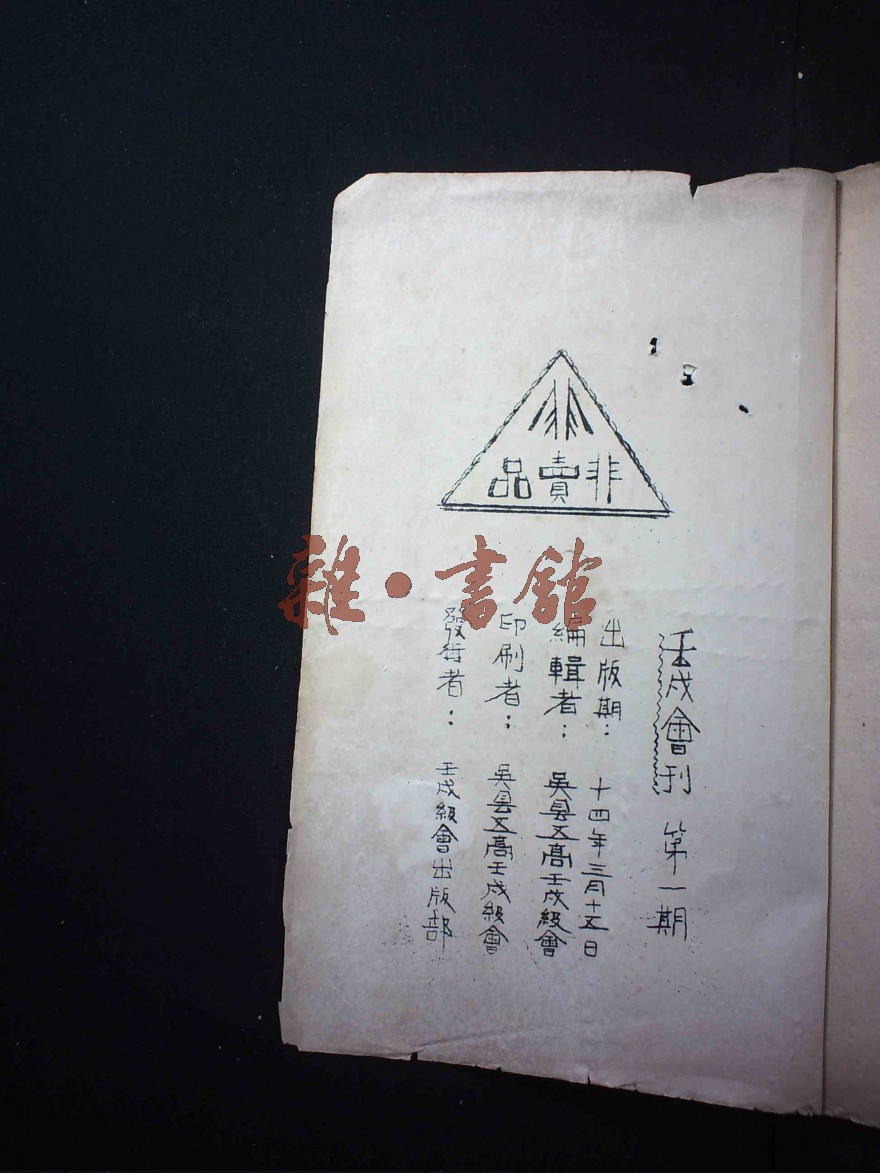 非賣品
壬戌會刋 第一期
出版期： 十四年三月十五日
編輯者： 吳县五高壬戌級會
印刷者： 吳县五高壬戌級會
發行者： 壬戌級會出版部
雜·書館